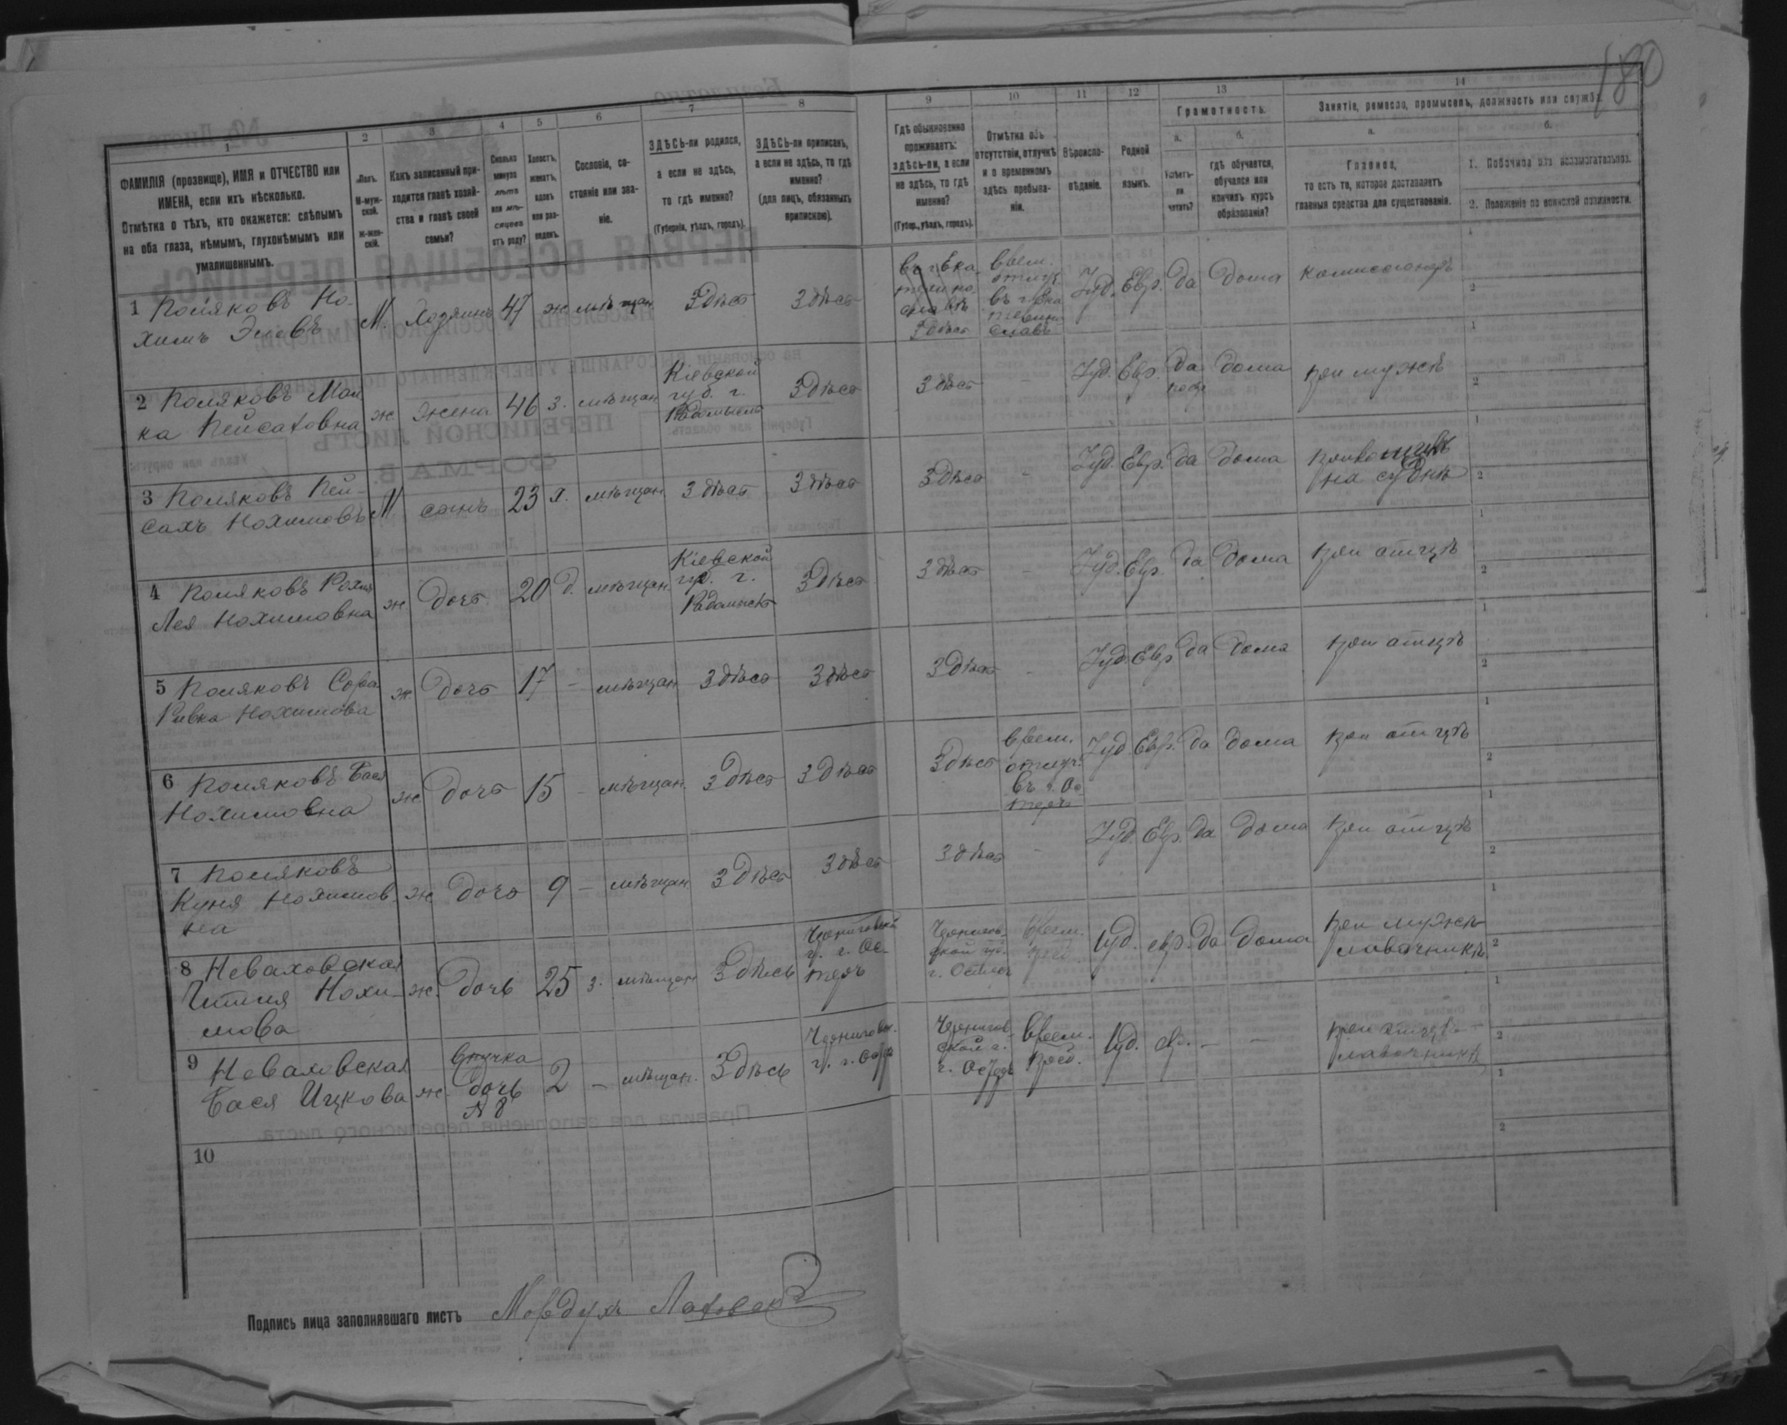 180
1
ФАМИЛІЯ (прозвище), ИМЯ и ОТЧЕСТВО или
ИМЕНА, если ихъ нѣсколько.
Отмѣтка о тѣхъ, кто окажется: слѣпымъ
на оба глаза, нѣмымъ, глухонѣмымъ или
умалишеннымъ.
2
Полъ.
М-муж-
ской.
Ж-жен-
скій.
3
Какъ записанный при-
ходится главѣ хозяй-
ства и главѣ своей
семьи?
4
Сколько
минуло
лѣтъ
или мѣ-
сяцевъ
отъ роду?
5
Холостъ,
женатъ,
вдовъ
или раз-
веденъ.
6
Сословіе, со-
стояніе или зва-
ніе.
7
ЗДѢСЬ-ли родился,
а если не здѣсь,
то гдѣ именно?
(Губернія, уѣздъ, городъ).
8
ЗДѢСЬ-ли приписанъ,
а если не здѣсь, то гдѣ
именно?
(для лицъ, обязанныхъ
припискою).
9
Гдѣ обыкновенно
проживаетъ:
здѣсь-ли, а если
не здѣсь, то гдѣ
именно?
(Губер., уѣздъ, городъ).
10
Отмѣтка объ
отсутствіи, отлучкѣ
и о временномъ
здѣсь пребыва-
ніи.
11
Вѣроиспо-
вѣданіе.
12
Родной
языкъ.
13
Грамотность.
а.
Умѣетъ-
ли
читать?
б.
гдѣ обучается,
обучался или
кончилъ курсъ
образованія?
14
Занятіе, ремесло, промыселъ, должность или служба.
а.
Главное,
то есть то, которое доставляетъ
главныя средства для существованія.
б.
1. Побочное или вспомогательное.
2. Положеніе по воинской повинности.
1 Поляковъ Но-
химъ
М. Хозяинъ 47 ж мѣщан здѣсь здѣсь
здѣсь
врем.
отлуч.
въ г. Ека
терино
славъ
Iуд. Евр. да дома комисіонеръ
2 Поляковъ Мал
ка Пейсаховна ж жена 46 з. мѣщан
Кіевской
губ. г.
здѣсь здѣсь - Iуд. Евр. да дома при мужѣ
3 Поляковъ Пей-
сахъ Нохимовъ М сынъ 23 х. мѣщан здѣсь здѣсь здѣсь - Iуд. Евр. да дома
4 Поляковъ
Лея Нохимовна ж дочь 20 д. мѣщан.
Кіевской
губ. г.
здѣсь здѣсь - Iуд. Евр. да дома при отцѣ
5 Поляковъ Сора
Ривка Нохимова ж дочь 17 - мѣщан здѣсь здѣсь здѣсь - Iуд Евр да дома при отцѣ
6 Поляковъ Бася
Нохимовна ж дочь 15 - мѣщан. здѣсь здѣсь здѣсь
врем.
отлуч.
въ г. Ос
теръ
Iуд Евр. да дома при отцѣ
7 Поляковъ
Куня Нохимов
на
ж дочь 9 - мѣщан здѣсь здѣсь здѣсь - Iуд. Евр. да дома при отцѣ
8 Неваховская
Нохи-
мова
ж. дочь 25 з. мѣщан здѣсь
Черниговской
г. г. Ос-
теръ
врем.
Iуд. евр. да дома
при мужѣ
лавочникѣ
9 Неваховская
Бася Ицкова ж.
Внучка
дочь
№ 8
2 - мѣщан. здѣсь
Черниговск.
г. г. Остр
Чернигов
ской г.
врем.
преб.
Iуд. евр. - -
при отцѣ
лавочникѣ
10
Подпись лица заполнявшаго листъ Мордухъ